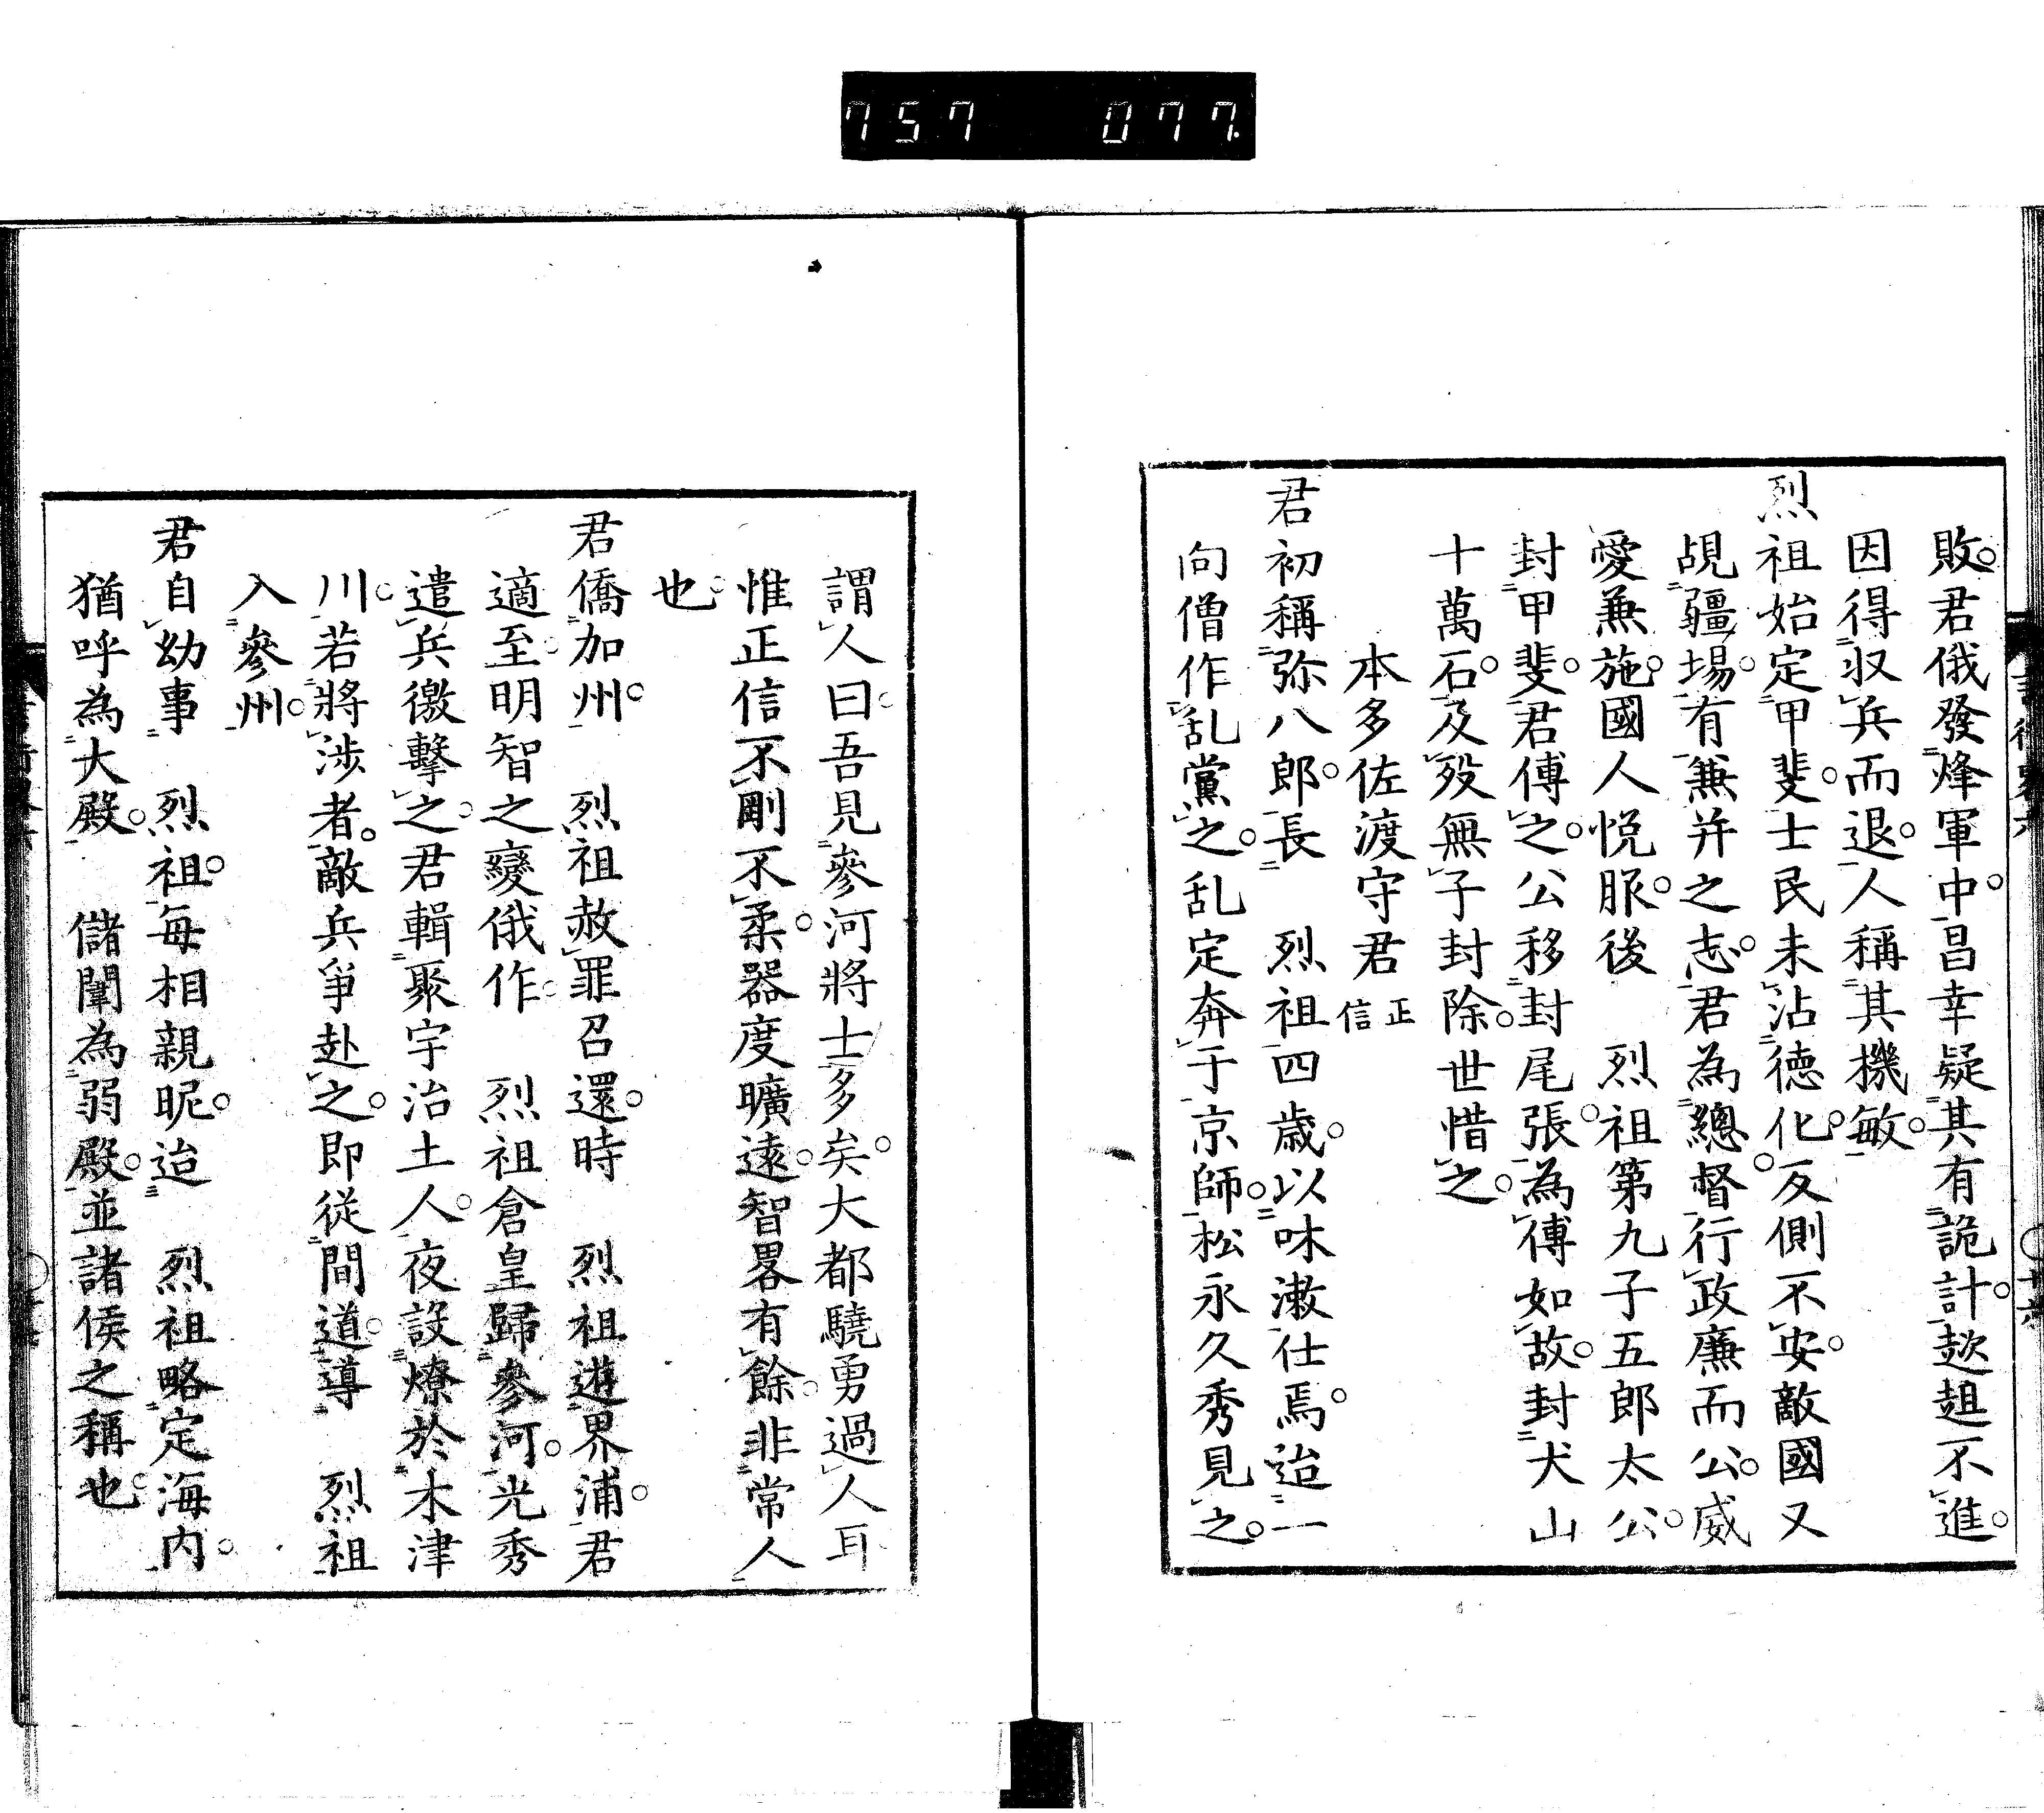 757 077.
敗君俄發烽軍中昌幸疑其有詭計趑趄不進
因得収兵而退人稱其機敏
烈祖始定甲斐士民未沾徳化反側不安敵國又
覘疆場有兼并之志君為總督行政廉而公威
愛兼施國人悦服後　烈祖第九子五郎太公
封甲斐君傅之公移封尾張為傅如故封犬山
十萬石及歿無子封除世惜之
本多佐渡守君正信
君初稱弥八郎長　烈祖四歳以味漱仕焉迨一
向僧作乱黨之乱定奔于京師松永久秀見之
謂人曰吾見參河將士多矣大都驍勇過人耳
惟正信不剛不柔器度曠遠智畧有餘非常人
也
君僑加州　烈祖赦罪召還時　烈祖遊界浦君
適至明智之變俄作　烈祖倉皇歸參河光秀
遣兵徼擊之君輯聚宇治土人夜設燎於木津
川若將渉者敵兵爭赴之即従間道導　烈祖
入參州
君自幼事　烈祖毎相親昵迨　烈祖略定海内
猶呼為大殿　儲闈為弱殿並諸侯之稱也